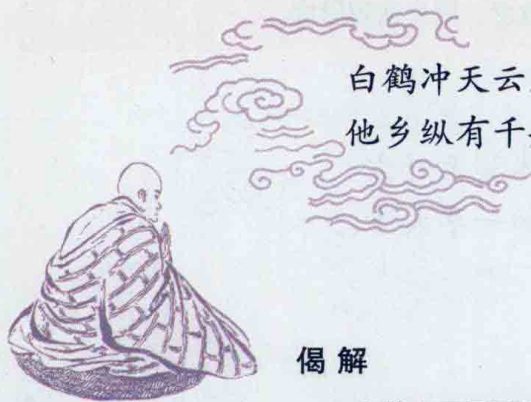 白鹤冲天云
他乡纵有千
偈解